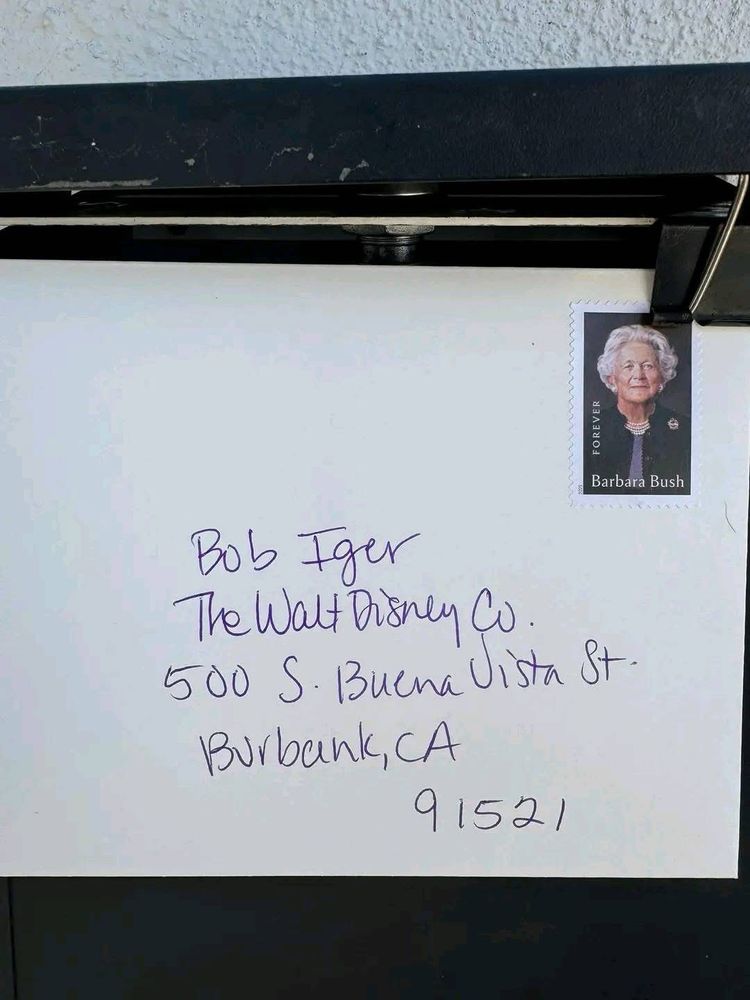 FOREVER
Barbara Bush
Bob Iger
The Walt Disney Co.
500 S. Buena Vista St.
Burbank, CA
91521